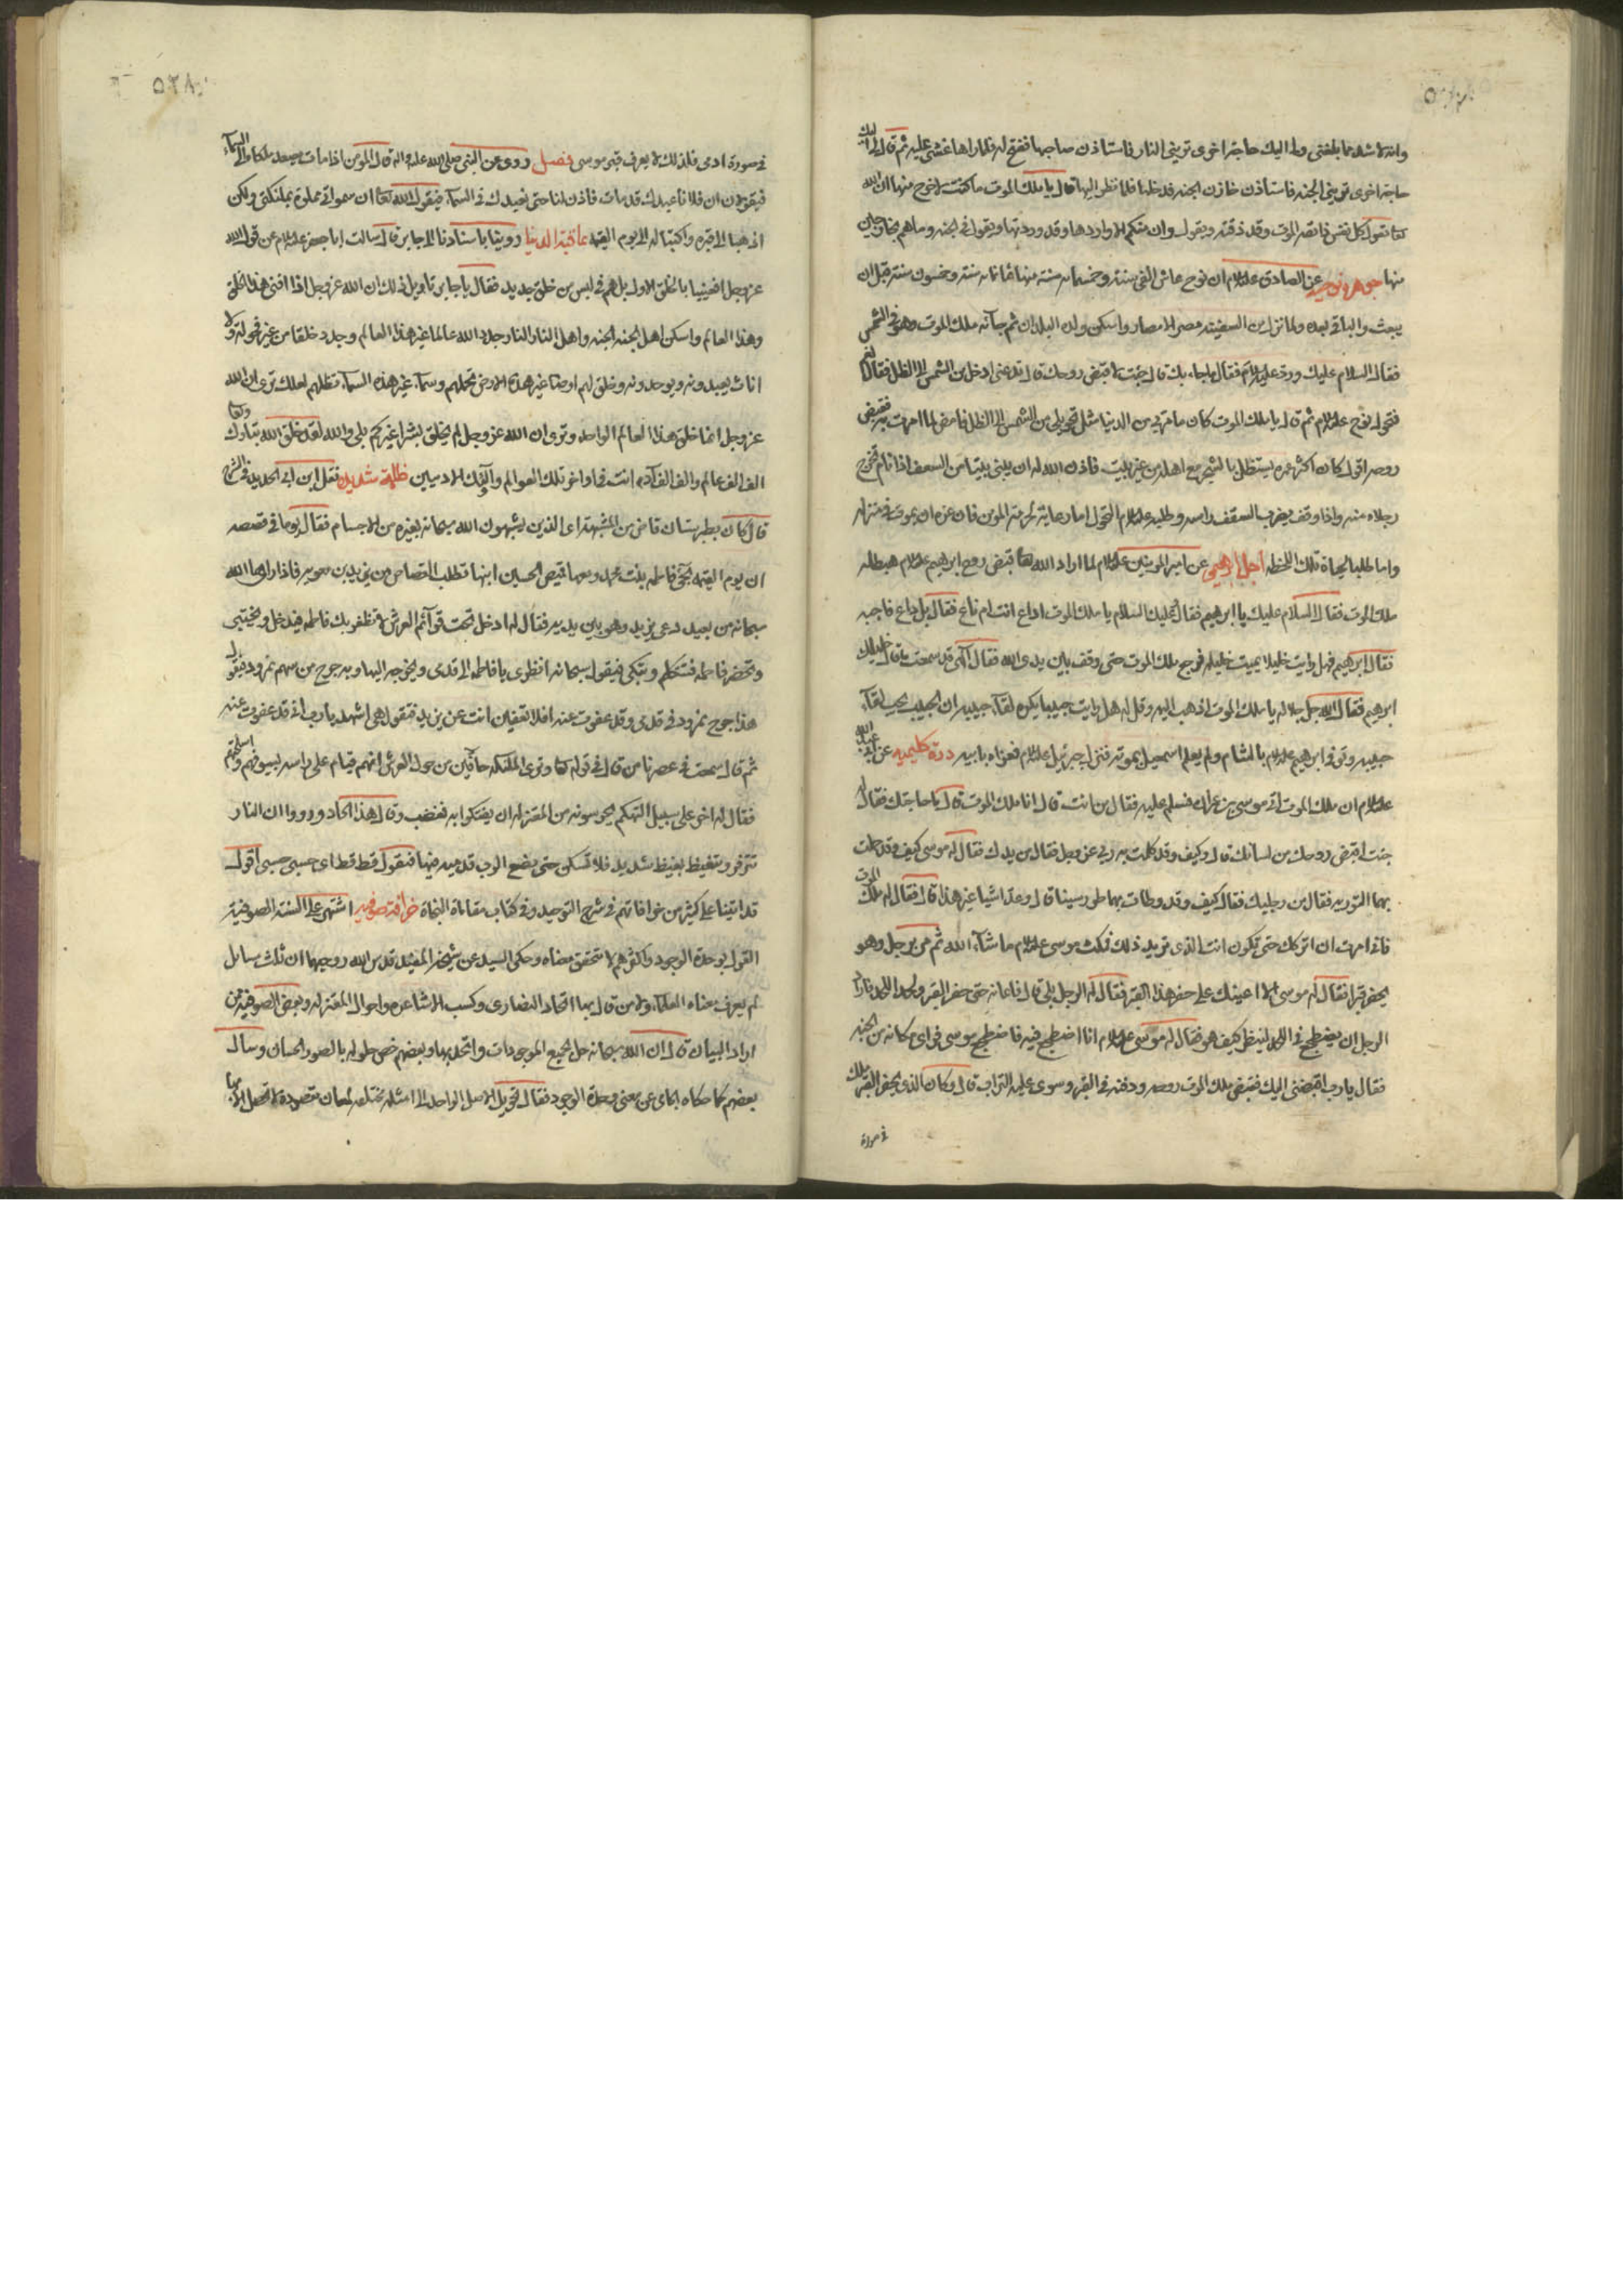 وانه لاشد مما بلغنى ولى اليك حاجة اخرى ترينى النار فاستاذن صاحبها ففتح له فلما راها غشى عليه ثم قال لى اليك
حاجة اخرى ترينى الجنه فاستأذن خازن الجنه فدخلها فلما نظر اليها قال يا ملك الموت ما كنت لاخرج منها ان الله
تعا يقول كل نفس ذائقة الموت وقد ذقته ويقول وان منكم الا واردها وقد وردتها ويقول فى الجنه وما هم بخارجين
منها جوهرة نوحيه عن الصادق علیه السلام ان نوح عاش الفى سنة وخمسمائه سنة منها ثمانمائه سنة وخمسون سنة قبل ان
يبعث والباقى بعده ولما نزل من السفينه مصر الامصار واسكن ولده البلدان ثم جاءه ملك الموت وهو فى الشمس
فقال السلام عليك ورد عليه السلام فقال ما جاء بك قال جئت لاقبض روحك قال تدعنى ادخل من الشمس الى الظل فقال نعم
فتحول نوح علیه السلام ثم قال يا ملك الموت كان ما مر بى من الدنيا مثل تحويلى من الشمس الى الظل فامض لما امرت به فقبض
روحه اقول كان اكثر عمره يستظل بالشجر مع اهله من غير بيت فاذن الله له ان يبنى بيتا من السعف اذا نام تخرج
رجلاه منه واذا وقف يضرب السقف راسه وطلبه علیه السلام التحول اما رعاية لحرمة المومن فان عن ان يموت فى منزله
واما طلبا لحياة تلك اللحظه اجل ابرهيمى عن امير المومنين علیه السلام لما اراد الله تعا قبض روح ابرهيم علیه السلام هبط اليه
ملك الموت فقال السلام عليك يا ابرهيم فقال وعليك السلام يا ملك الموت اداع انت ام ناع فقال بل داع فاجبه
فقال ابرهيم فهل رايت خليلا يميت خليله فرجع ملك الموت حتى وقف بين يدى الله فقال الهى قد سمعت ما قال خليلك
ابرهيم فقال الله جل جلاله يا ملك الموت اذهب اليه وقل له هل رايت حبيبا يكره لقاء حبيبه ان الحبيب يحب لقاء
حبيبه وتوفى ابرهيم علیه السلام بالشام ولم يعلم اسمعيل بموته فنزل جبرئيل علیه السلام فعزاه بابيه درة كليميه عن ابى عبد الله
علیه السلام ان ملك الموت اتى موسى بن عمران فسلم عليه فقال من انت قال انا ملك الموت قال ما حاجتك فقال له
جئت اقبض روحك من لسانك قال وكيف وقد كلمت به ربى عز وجل فقال من يدك فقال له موسى كيف وقد حملت
بهما التوريه فقال من رجليك فقال كيف وقد وطات بهما طور سينا قال وعد اشياء غير هذا قال فقال له ملك الموت
فانى امرت ان اتركك حتى تكون انت الذى تريد ذلك فمكث موسى علیه السلام ما شاء الله ثم مر برجل وهو
يحفر قبرا فقال له موسى الا اعينك على حفر هذا القبر فقال له الرجل بلى قال فاعانه حتى حفر القبر ولحد اللحد فاراد
الرجل ان يضطجع فى اللحد لينظر كيف هو فقال له موسى علیه السلام انا اضطجع فيه فاضطجع موسى فراى مكانه من الجنه
فقال يا رب اقبضنى اليك فقبض ملك الموت روحه ودفنه فى القبر وسوى عليه التراب قال وكان الذى يحفر القبر ملك
فى صورة
٥٣٨
فى صورة ادمى فلذلك لا يعرف قبر موسى فصل روى عن النبى صلى الله عليه واله قال المومن اذا مات يصعد ملكاه الى السماء
فيقولان ان فلانا عبدك قد مات فاذن لنا حتى نعبدك فى السماء فيقول الله تعا ان سمواتى مملوة بملئكتى ولكن
اذهبا الى قبره واكتبا له الى يوم القيمه عاقبة الدنيا روينا باسنادنا الى جابر قال سالت ابا جعفر علیه السلام عن قول الله
عز وجل افعيينا بالخلق الاول بل هم فى لبس من خلق جديد فقال يا جابر تاويل ذلك ان الله عز وجل اذا افنى هذا الخلق
وهذا العالم واسكن اهل الجنه الجنه واهل النار النار جدد الله عالما غير هذا العالم وجدد خلقا من غير فحوله ولا
اناث يعبدونه ويوحدونه وخلق لهم ارضا غير هذه الارض تحملهم وسماء غير هذه السماء تظلهم لعلك ترى ان الله
عز وجل انما خلق هذا العالم الواحد وترى ان الله عز وجل لم يخلق بشرا غيركم بلى والله لقد خلق الله تبارك وتعا
الف الف عالم والف الف آدم انت فى اواخر تلك العوالم واولئك الادميين ظلمة شديده نقل ابن ابى الحديد فى الشرح
قال كان بطبرستان قاض من المشبهة اى الذين يشبهون الله سبحانه بغيره من الاجسام فقال يوما فى قصصه
ان يوم القيمه تجئ فاطمه بنت محمد ومعها قميص الحسين ابنها تطلب القصاص من يزيد بن معويه فاذا راها الله
سبحانه من بعيد دعى يزيد وهو بين يديه فقال له ادخل تحت قوائم العرش لا تظفر بك فاطمه فيدخل ويختبى
وتحضر فاطمه فتتكلم وتبكى فيقول سبحانه انظرى يا فاطمه الى قدمى ويخرجه اليها وبه جرح من سهم نمرود فيقول
هذا جرح نمرود فى قدمى وقد عفوت عنه افلا تعفين انت عن يزيد فتقول هى اشهد يا رب انى قد عفوت عنه
ثم قال سمعت فى عصرنا من قال فى قوله تعا وترى الملئكه حافين من حول العرش انهم قيام على راسه بسيوفهم واسلحتهم
فقال له اخر على سبيل التهكم يحرسونه من المعتزله ان يفتكوا به فغضب وقال هذا الحاد ورووا ان النار
تزفر وتتغيظ تغيظ شديد فلا تسكن حتى يضع الرب قدميه فيها فتقول قط قط اى حسبى حسبى اقول
قد اتينا على كثير من خرافاتهم فى شرح التوحيد وفى كتاب مقامات النجاة خرافة صوفيه اشتهر على السنة الصوفية
القول بوحدة الوجود واكثرهم لا يتحقق معناه وحكى السيد عن شيخه المفيد قدس الله روحيهما ان ثلث مسايل
لم يعرف معناه العلماء ولا من قال بها اتحاد النصارى وكسب الاشاعره واحوال المعتزله وبعض الصوفية من
اراد البيان قال ان الله سبحانه حل بجميع الموجودات واتحد بها وبعضهم خص حلوله بالصور الحسان وسأل
بعضهم كما حكاه الجامى عن معنى وحدة الوجود فقال تحويل الاصل الواحد الى امثله مختلفه لمعان مقصودة لا تحصل الا بها